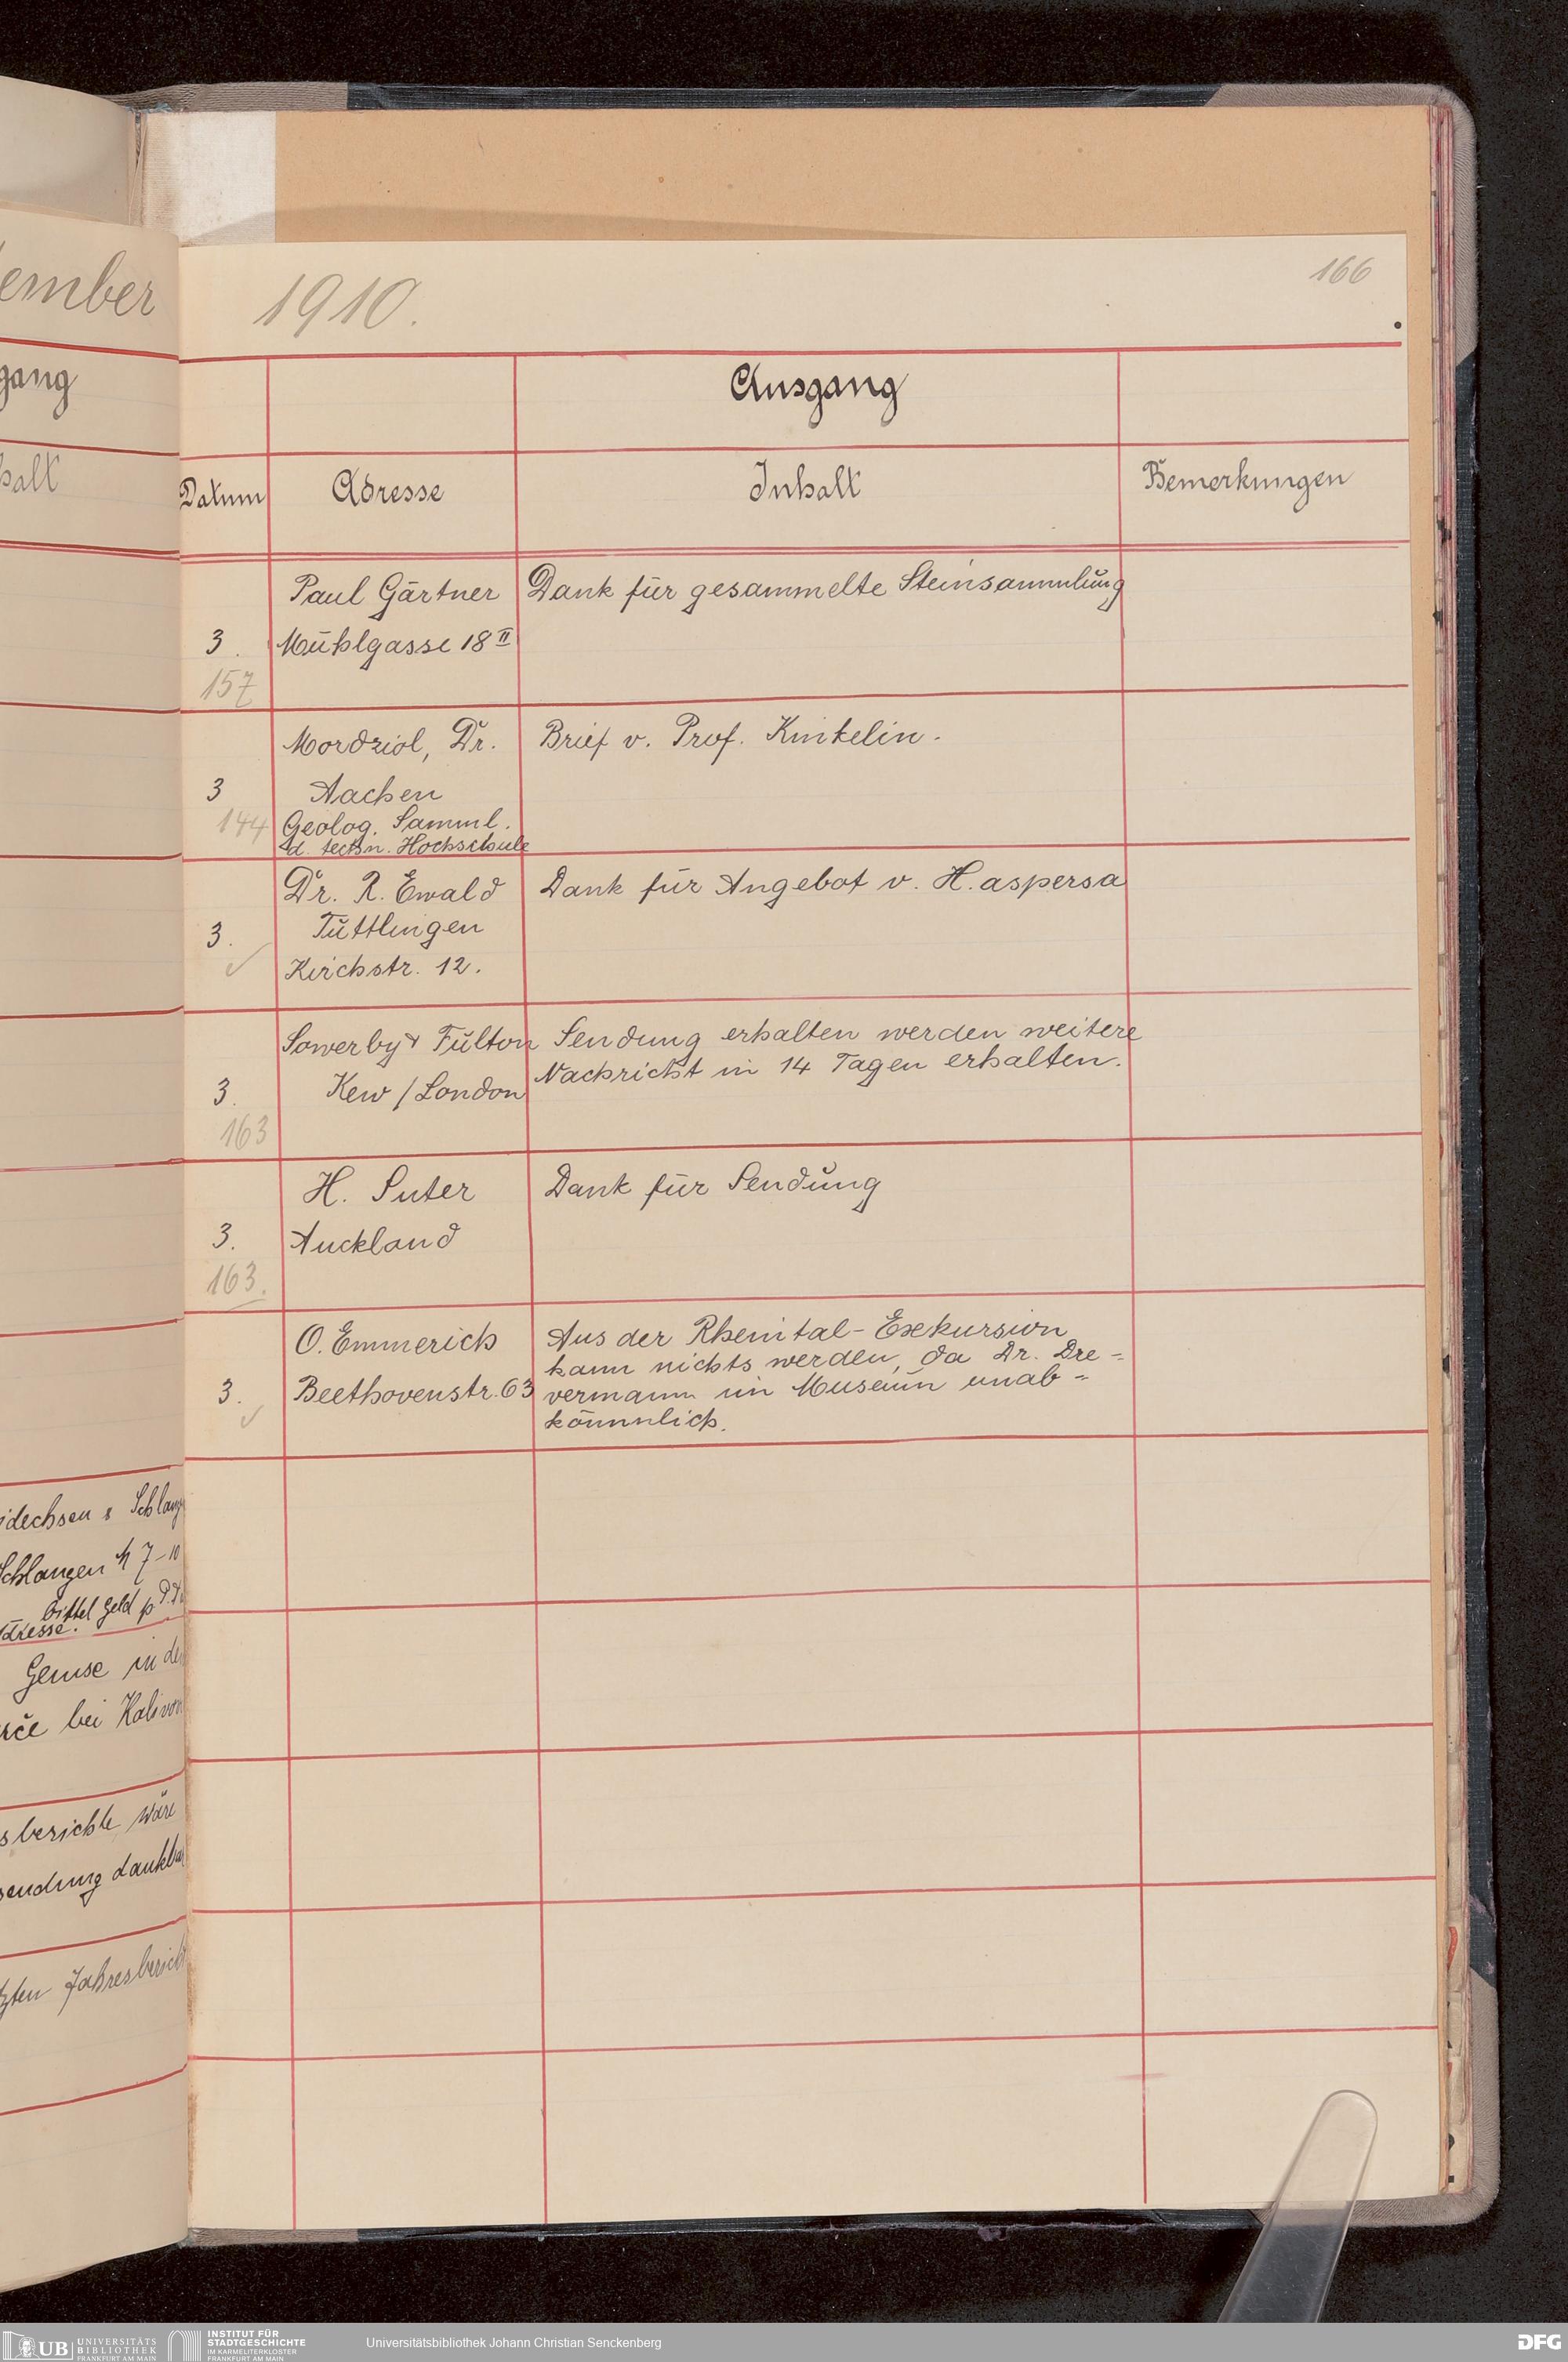 ember
gang
halt
idechsen & Schlang
Schlangen M 7-10
bittet Geld p
dresse.
Gemse in der
rče bei
sberichte, wäre
sendung dankbar
tzten Jahresbericht
1910.
166
Ausgang
Datum
Adresse
Inhalt
Bemerkungen
Paul Gärtner
Dank für gesammelte Steinsammlung
3.
Mühlgasse 18 II
157
Mordziol, Dr.
Brief v. Prof. Kinkelin.
3
Aachen
144
Geolog. Samml.
d. techn. Hochschule
Dr. R. Ewald
Dank für Angebot v. H. aspersa
3.
Tuttlingen
Kirchstr. 12.
Sowerby & Fulton
Sendung erhalten werden weitere
Nachricht in 14 Tagen erhalten.
3.
Kew / London
163
H. Suter
Dank für Sendung
3.
Auckland
163.
O. Emmerich
Aus der Rheintal-Exkursion
kann nichts werden, da Dr. Dre-
3.
Beethovenstr. 63
vermann im Museum unab-
kömmlich.
UB UNIVERSITÄTS
BIBLIOTHEK
FRANKFURT AM MAIN
INSTITUT FÜR
STADTGESCHICHTE
IM KARMELITERKLOSTER
FRANKFURT AM MAIN
Universitätsbibliothek Johann Christian Senckenberg
DFG